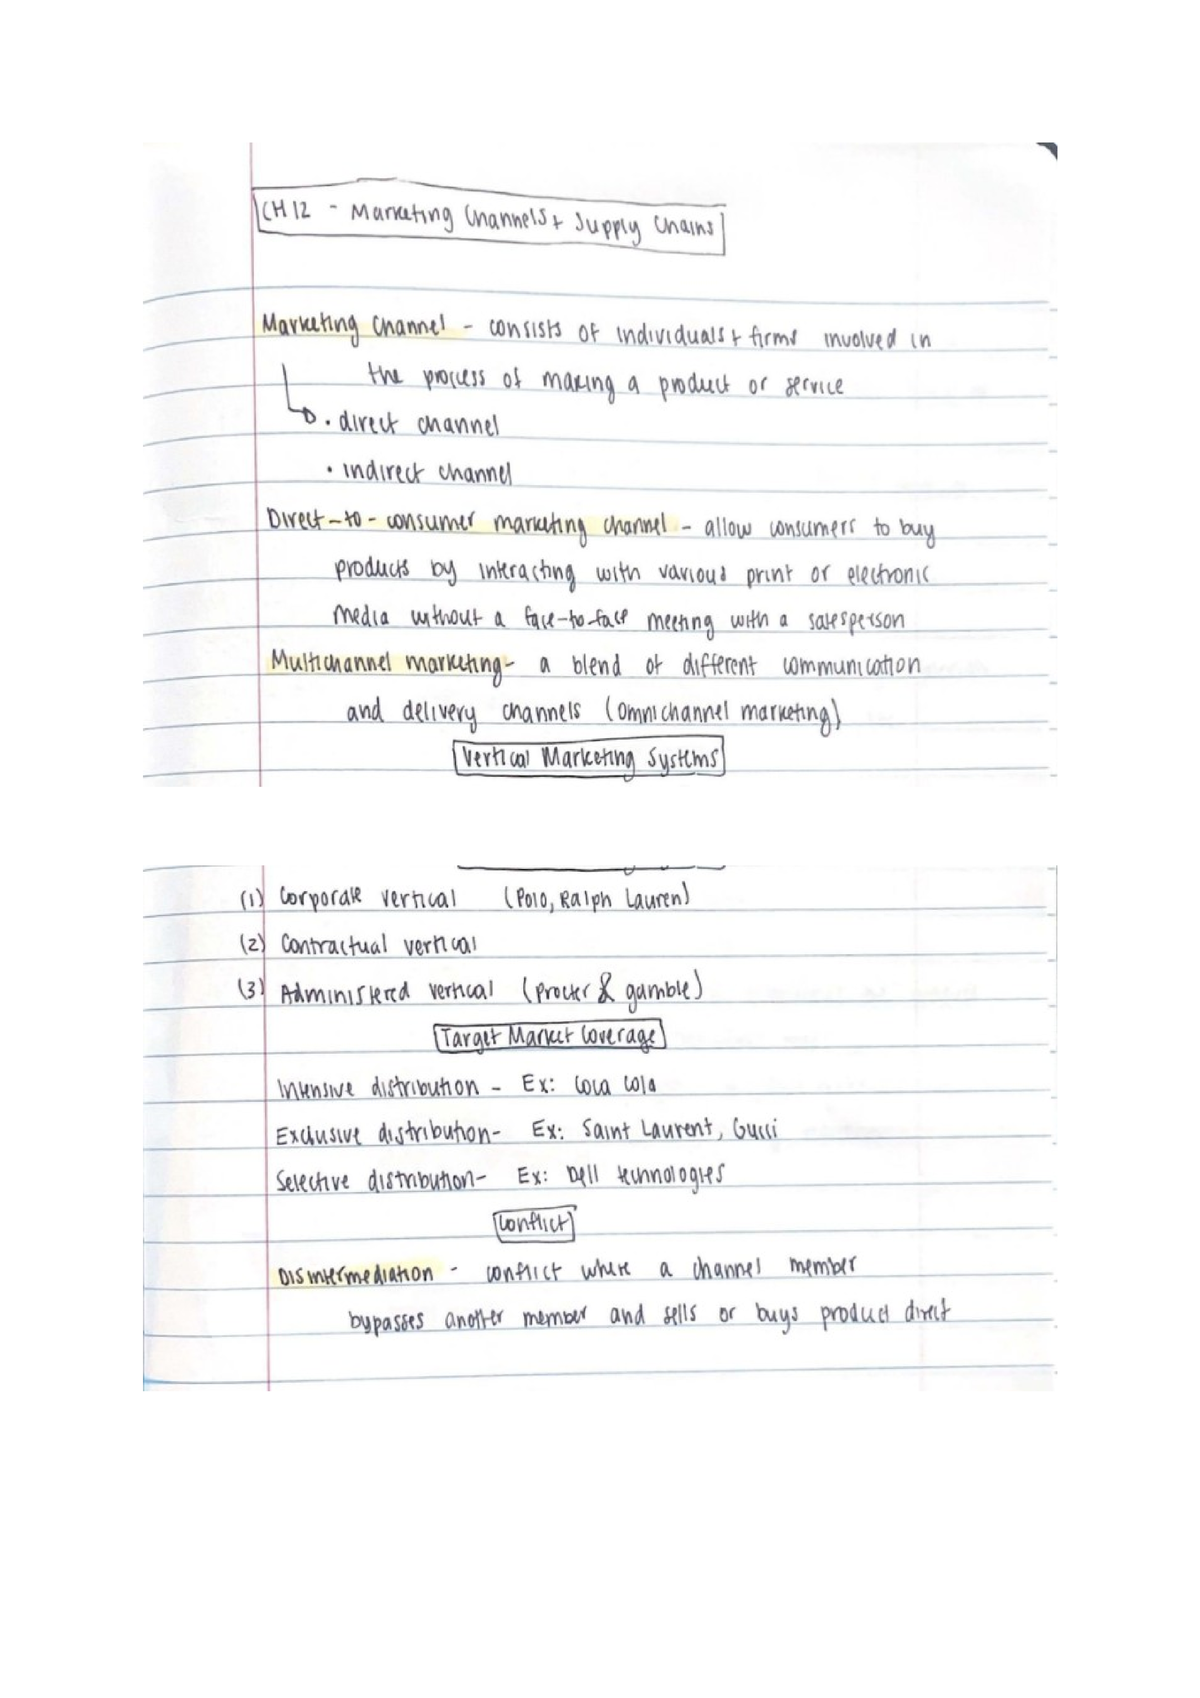 CH 12 - Marketing Channels + Supply Chains
Marketing Channel - consists of individuals + firms involved in
the process of making a product or service
• direct channel
• indirect channel
Direct-to-consumer marketing channel - allow consumers to buy
products by interacting with various print or electronic
media without a face-to-face meeting with a salesperson
Multichannel marketing - a blend of different communication
and delivery channels (omnichannel marketing)
Vertical Marketing Systems
(1) Corporate vertical (Polo, Ralph Lauren)
(2) Contractual vertical
(3) Administered vertical (procter & gamble)
Target Market Coverage
Intensive distribution - Ex: Coca Cola
Exclusive distribution- Ex: Saint Laurent, Gucci
Selective distribution- Ex: Dell technologies
Conflict
Disintermediation - conflict where a channel member
bypasses another member and sells or buys product direct